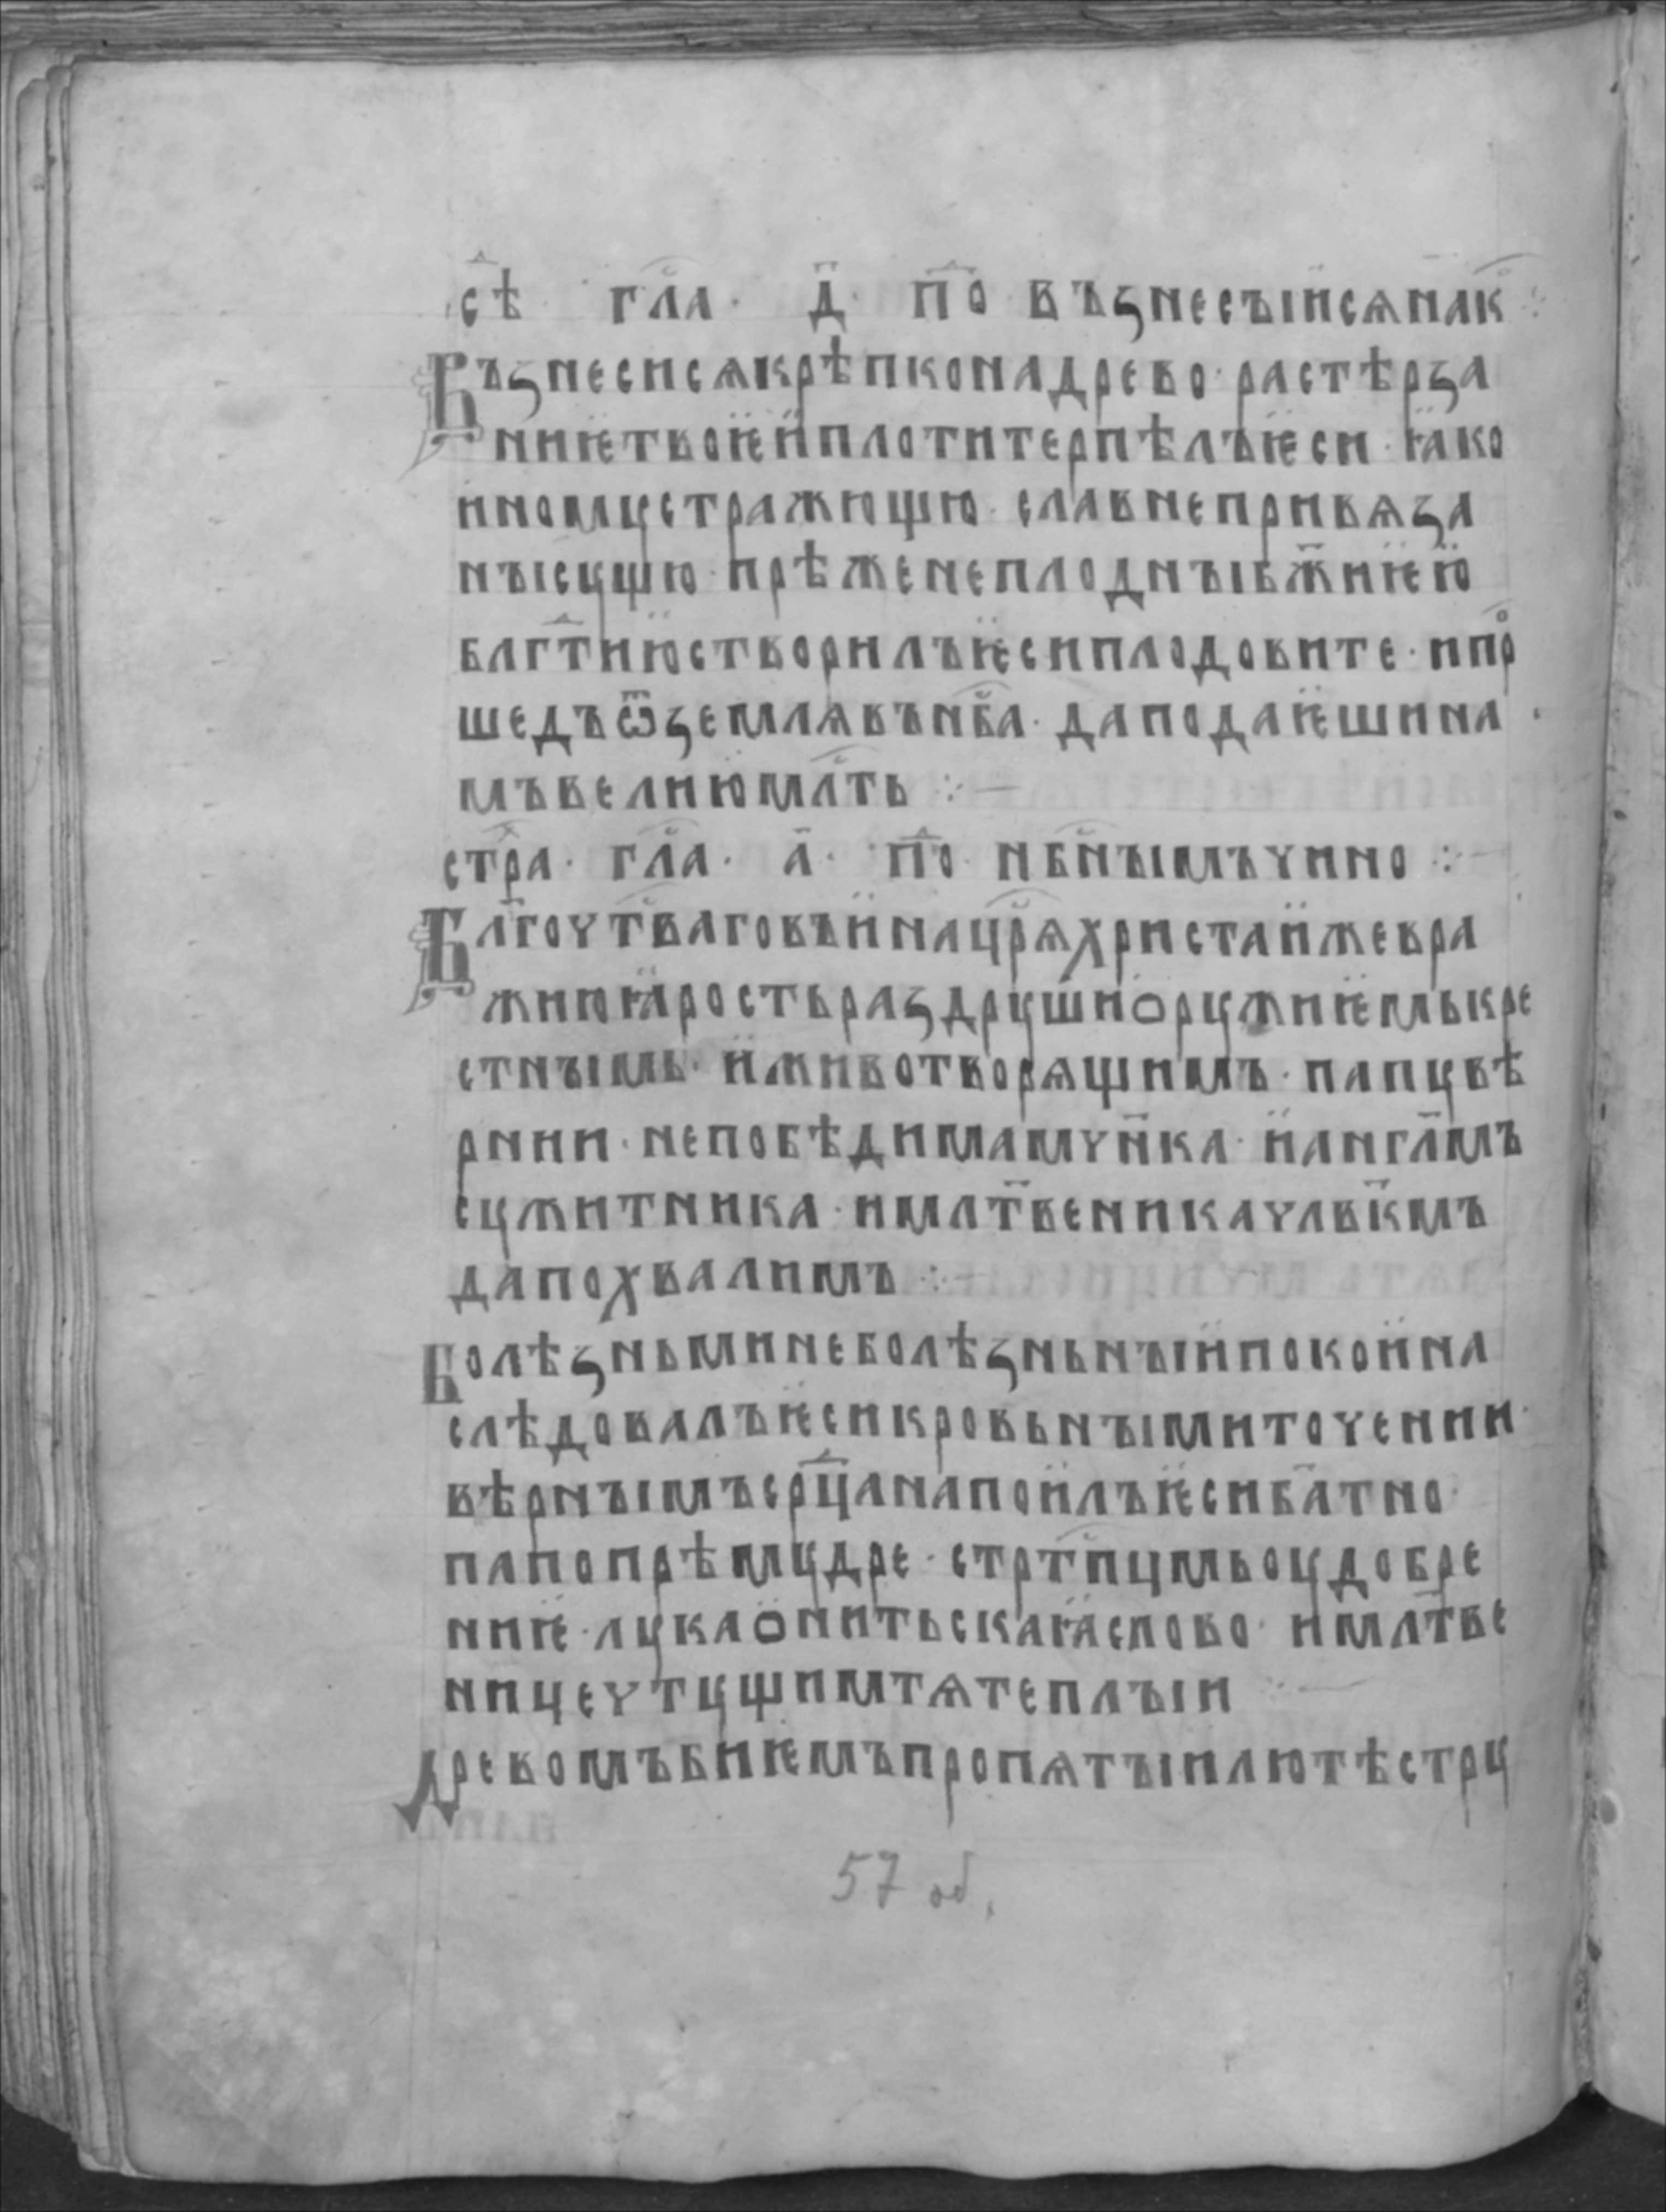 сѣ · гл҃а · д҃ · по҃ възнесꙑисѧнак҇ ⁘
Възнесисѧкрѣпконадрево · растѣрза
ниѥтвоѥиплотитерпѣлъѥси · ꙗко
иномꙋстражющю · славнепривѧза
нꙑсꙋщю · прѣженеплоднꙑꙗб҃жиѥю
блг҃тиюстворилъѥсиплодовите · ипро
шедъѿземлѧвън҃ба · даподаѥшина
мъвелиюмл҃ть ⁘ —
стр҃а · гл҃а · а҃ · по҃ нб҃нꙑмъчино ⁘
Бл҃гочт҃ваговъинацр҃ѧхристаижевра
жиюꙗростьраздрꙋшиорꙋжиѥмькре
стнꙑмь · иживотворѧщимъ · папꙋвѣ
рнии · непобѣдимамчн҃ка · иангл҃мъ
сꙋжитника · имлт҃веникачлвк҃мъ
дапохвалимъ ⁘ —
Болѣзньминеболѣзньнꙑипокоина
слѣдовалъѥсикровьнꙑмиточении ·
вѣрнꙑмъсрц҃анапоилъѥсиб҃атно ·
папопрѣмꙋдре · стрт҃пцмьоꙋдобре
ниѥ · лꙋкаонитьскаꙗслово · имлт҃ве
ницечтꙋщимтѧтеплꙑи ⁘ —
Древомъбиѥмъпропѧтꙑилютѣстрꙋ
57 об.